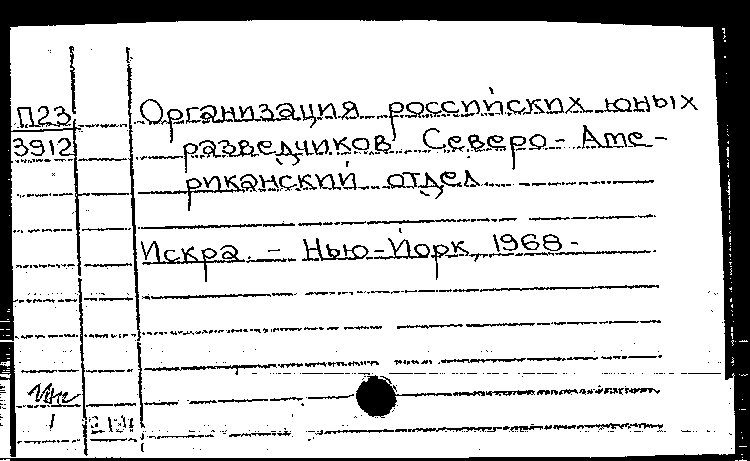 П23 Организация российских юных
3912 разведчиков Северо-Аме-
риканский отдел
Искра. - Нью-Йорк, 1968-
1